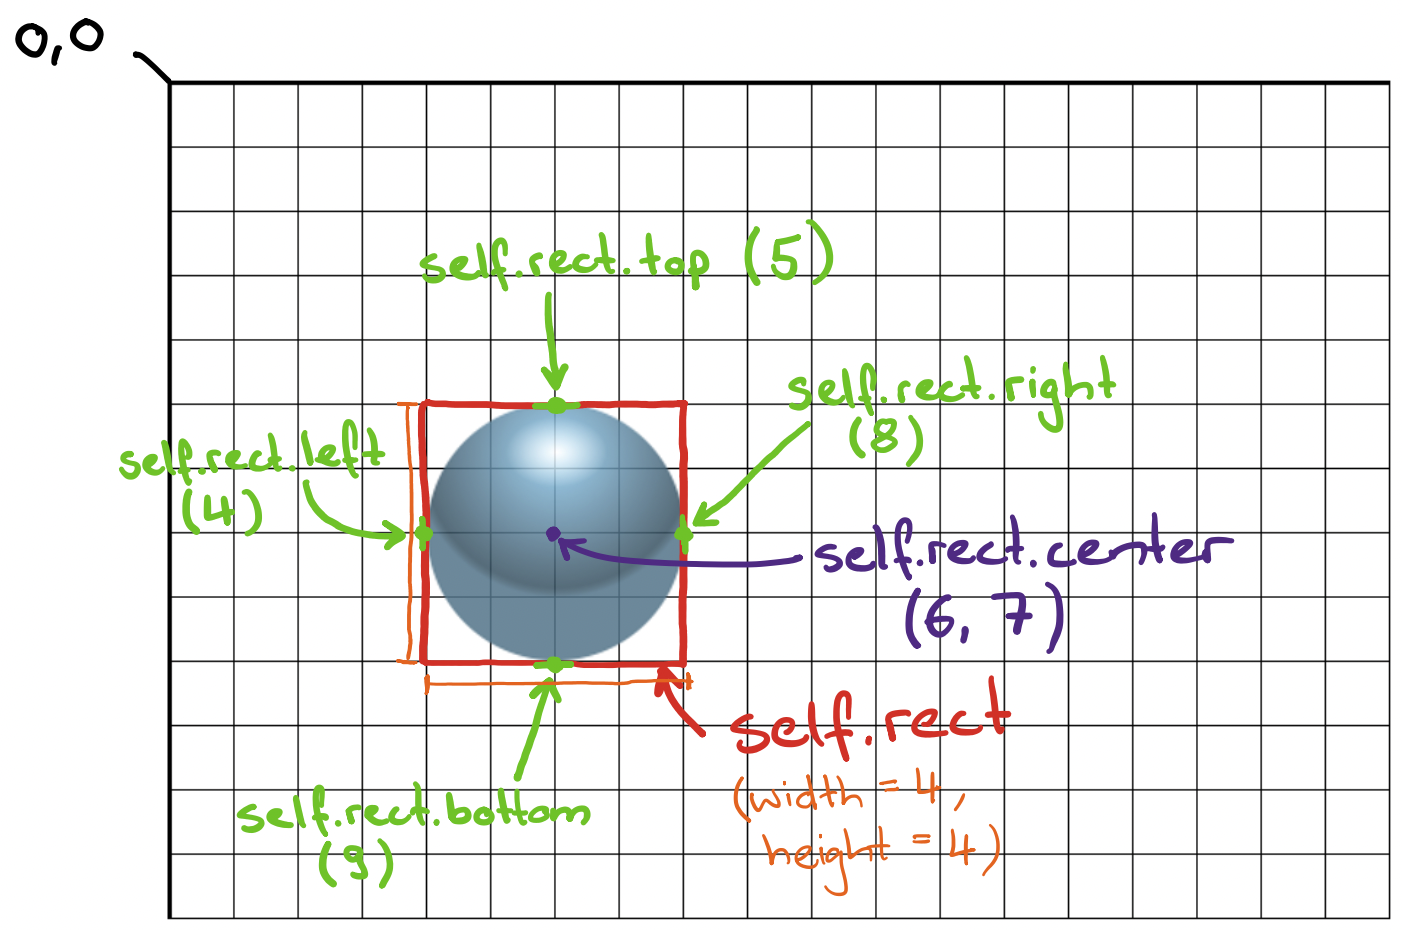 0,0
self.rect.top (5)
self.rect.right
(8)
self.rect.left
(4)
self.rect.center
(6, 7)
self.rect
(width = 4,
height = 4)
self.rect.bottom
(9)